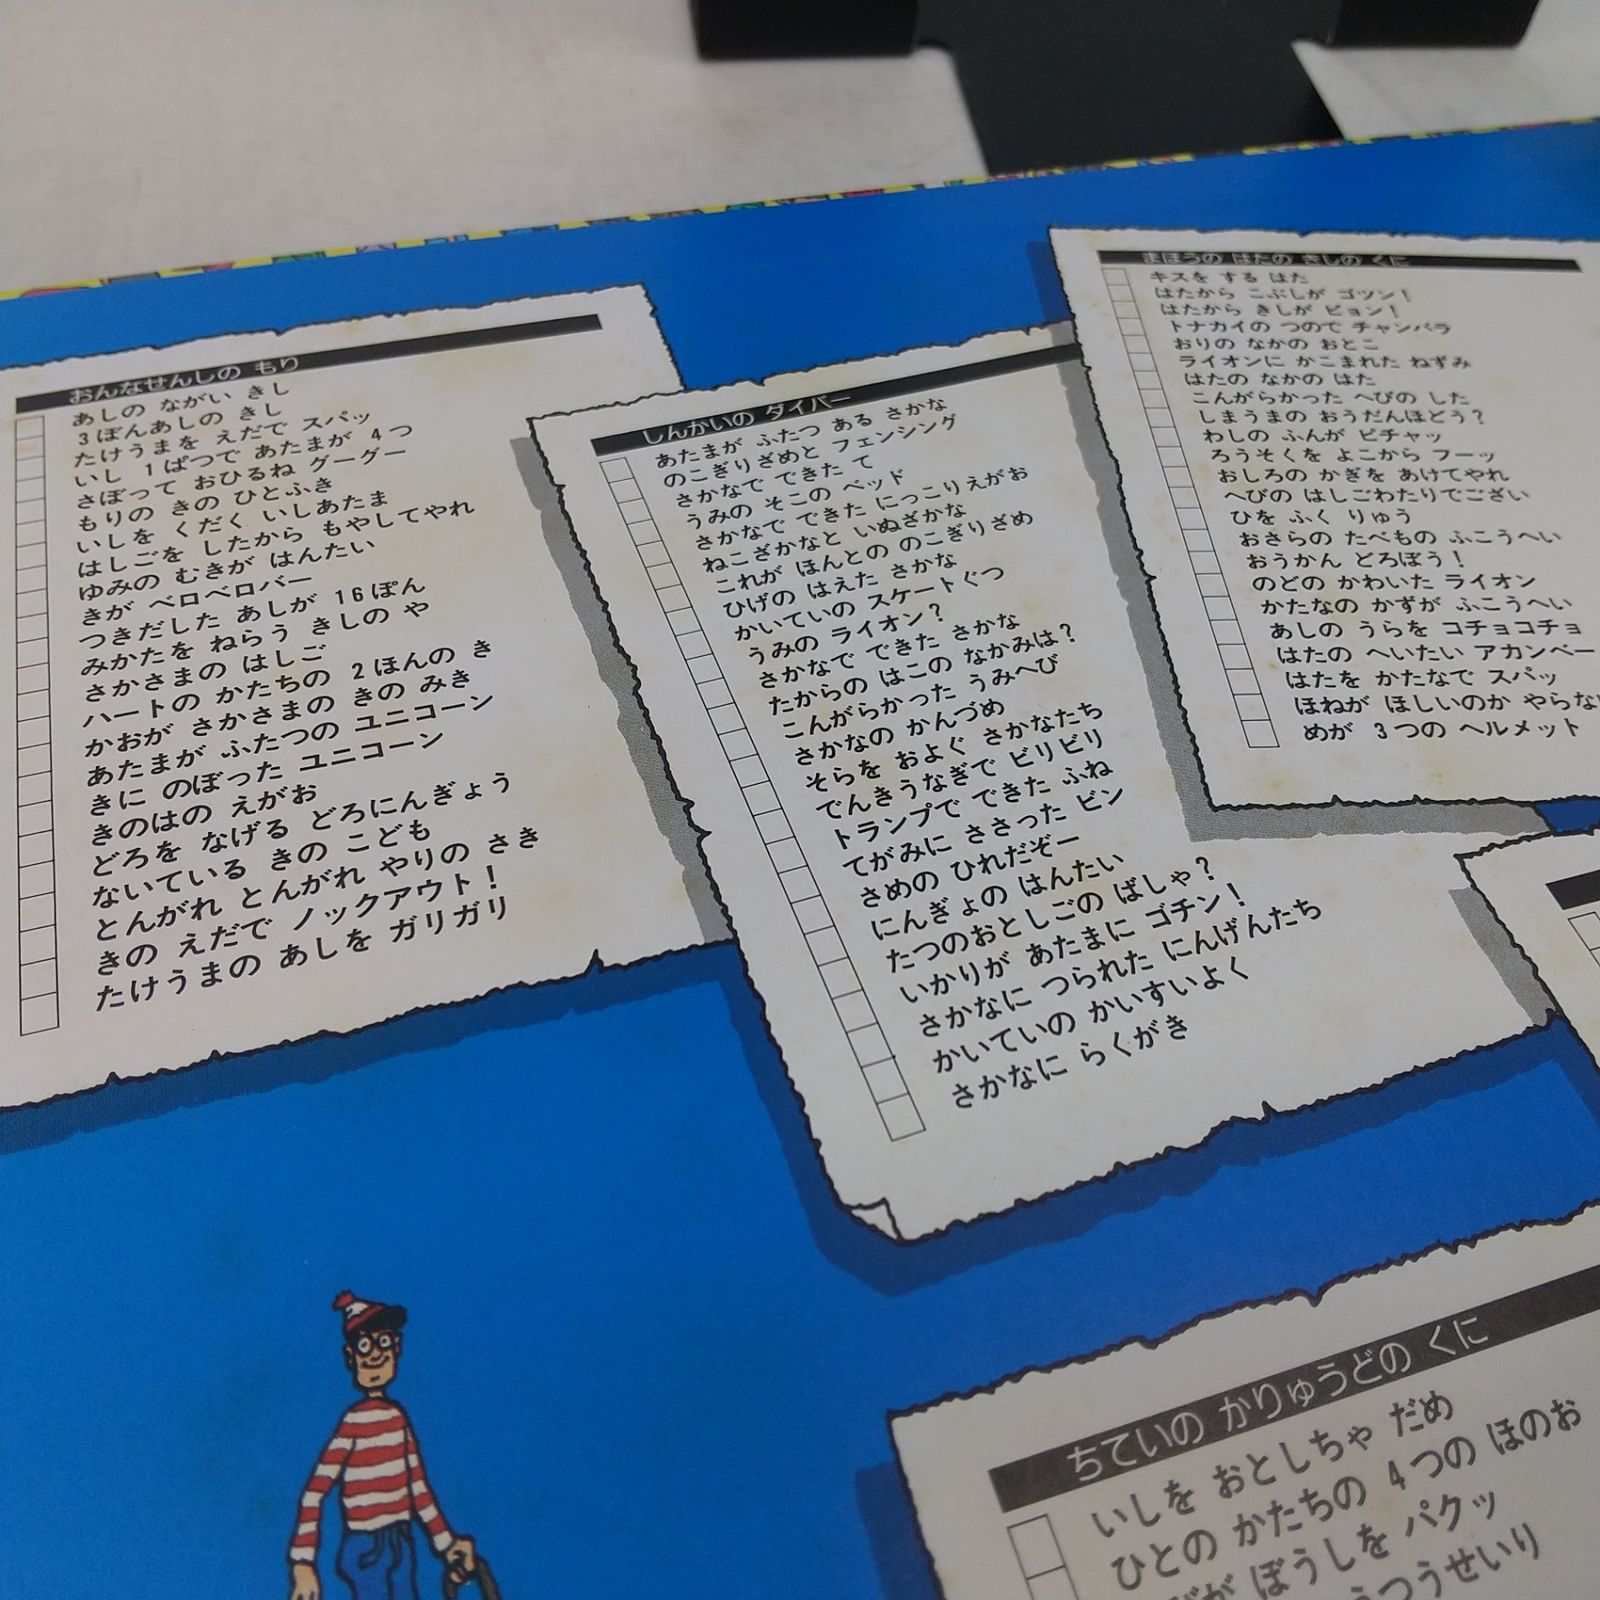 おんなせんしの もり
あしの ながい きし
3ぼんあしの きし
たけうまを えだで スパッ
いし 1ぱつで あたまが 4つ
さぼって おひるね グーグー
もりの きの ひとふき
いしを くだく いしあたま
はしごを したから もやしてやれ
ゆみの むきが はんたい
きが ベロベロバー
つきだした あしが 16ぽん
みかたを ねらう きしの や
さかさまの はしご
ハートの かたちの 2ほんの き
かおが さかさまの きの みき
あたまが ふたつの ユニコーン
きに のぼった ユニコーン
きのはの えがお
どろを なげる どろにんぎょう
ないている きの こども
とんがれ とんがれ やりの さき
きの えだで ノックアウト!
たけうまの あしを ガリガリ
しんかいの ダイバー
あたまが ふたつ ある さかな
のこぎりざめと フェンシング
さかなで できた て
うみの そこの ベッド
さかなで できた にっこりえがお
ねこざかなと いぬざかな
これが ほんとの のこぎりざめ
ひげの はえた さかな
かいていの スケートぐつ
うみの ライオン?
さかなで できた さかな
たからの はこの なかみは?
こんがらかった うみへび
さかなの かんづめ
そらを およぐ さかなたち
でんきうなぎで ビリビリ
トランプで できた ふね
てがみに ささった ビン
さめの ひれだぞー
にんぎょの はんたい
たつのおとしごの ばしゃ?
いかりが あたまに ゴチン!
さかなに つられた にんげんたち
かいていの かいすいよく
さかなに らくがき
まほうの はたの きしの くに
キスを する はた
はたから こぶしが ゴツン!
はたから きしが ピョン!
トナカイの つので チャンバラ
おりの なかの おとこ
ライオンに かこまれた ねずみ
はたの なかの はた
こんがらかった へびの した
しまうまの おうだんほどう?
わしの ふんが ピチャッ
ろうそくを よこから フーッ
おしろの かぎを あけてやれ
へびの はしごわたりでござい
ひを ふく りゅう
おさらの たべもの ふこうへい
おうかん どろぼう!
のどの かわいた ライオン
かたなの かずが ふこうへい
あしの うらを コチョコチョ
はたの へいたい アカンベー
はたを かたなで スパッ
ほねが ほしいのか やらない
めが 3つの ヘルメット
ちていの かりゅうどの くに
いしを おとしちゃ だめ
ひとの かたちの 4つの ほのお
びが ぼうしを パクッ
うつうせいり